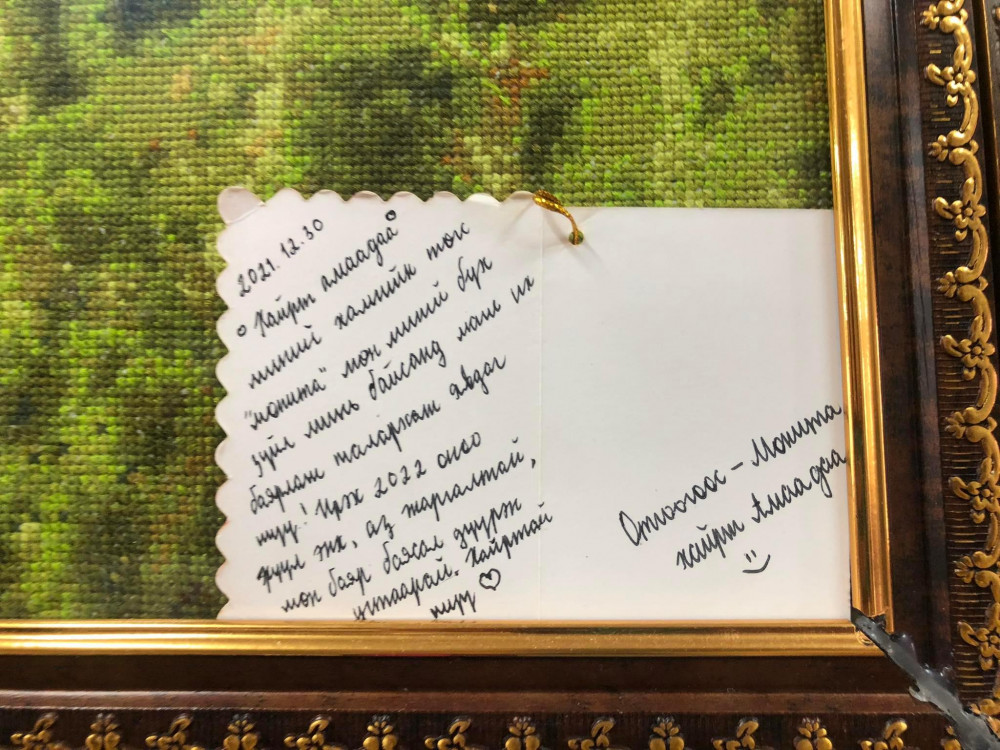 2021.12.30
Хайрт амаадай
миний хамгийн том
"монита" мөн миний бүх
зүйл минь байсанд маш их
баярлаж талархаж явдаг
шүү! Ирж 2022 оноо
эрүүл энх, аз жаргалтай,
мөн баяр баясал дүүрэн
угтаарай. Хайртай
шүү ♡
Отгоогоос - Монита
хайрт Амаадаа